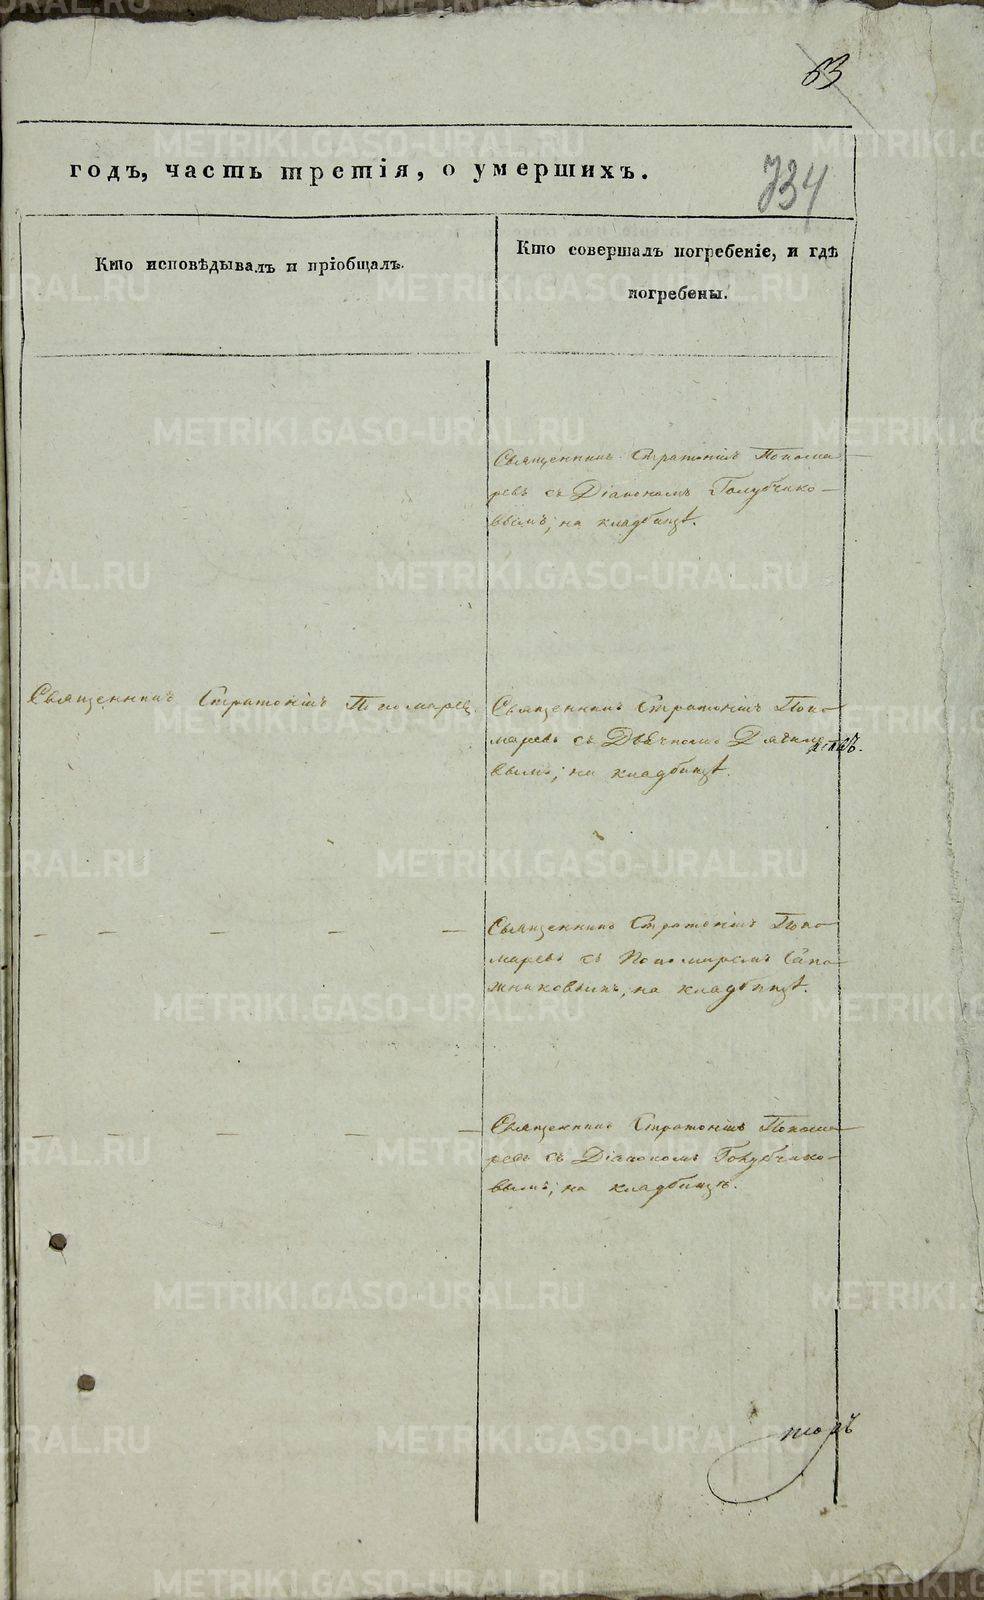 63
734
годъ, часть третія, о умершихъ.
Кто исповѣдывалъ и пріобщалъ.
Кто совершалъ погребеніе, и гдѣ
погребены.
Священникъ Стратоникъ Понома
ревъ съ Діакономъ Голубчико-
вымъ, на кладбищѣ.
Священникъ Стратоникъ Пономаревъ.
Священникъ Стратоникъ Поно-
маревъ съ Дьячкомъ
вымъ, на кладбищѣ.
— — — — —
Священникъ Стратоникъ Поно-
маревъ съ Пономаремъ Сапо-
жниковымъ, на кладбищѣ.
— — — —
Священникъ Стратоникъ Понома-
ревъ съ Діакономъ Голубчико-
вымъ, на кладбищѣ.
торъ
METRIKI.GASO-URAL.RU